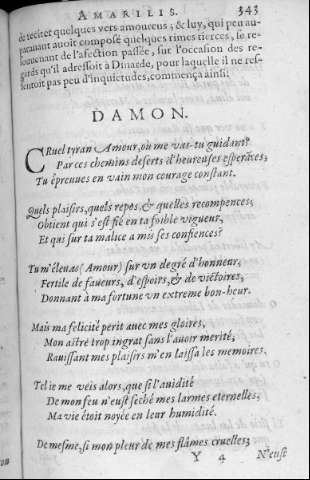 AMARILIS. 343
de reciter quelques vers amoureux ; & luy, qui peu au-
parauant auoit composé quelques rimes tierces, se re-
souuenant de l'afection passée, sur l'occasion des re-
gards qu'il adressoit à Dinarde, pour laquelle il ne res-
sentoit pas peu d'inquietudes, commença ainsi:
DAMON.
CRuel tyran Amour, où me vas-tu guidant?
Par ces chemins deserts d'heureuses esperãces;
Tu épreuues en vain mon courage constant.
Quels plaisirs, quels repos & quelles recompences;
Obtient qui s'est fié en ta foible vigueur,
Et qui sur ta malice a mis ses confiences?
Tu m'éleuas (Amour) sur vn degré d'honneur,
Fertile de faueurs, d'espoirs, & de victoires;
Donnant à ma fortune vn extreme bon-heur.
Mais ma felicité perit auec mes gloires,
Mon astre trop ingrat sans l'auoir merité,
Rauissant mes plaisirs m'en laissa les memoires.
Tel ie me veis alors, que si l'auidité
De mon feu n'eust seché mes larmes eternelles,
Ma vie étoit noyée en leur humidité.
De mesme, si mon pleur de mes flâmes cruelles;
Y 4 N'eust